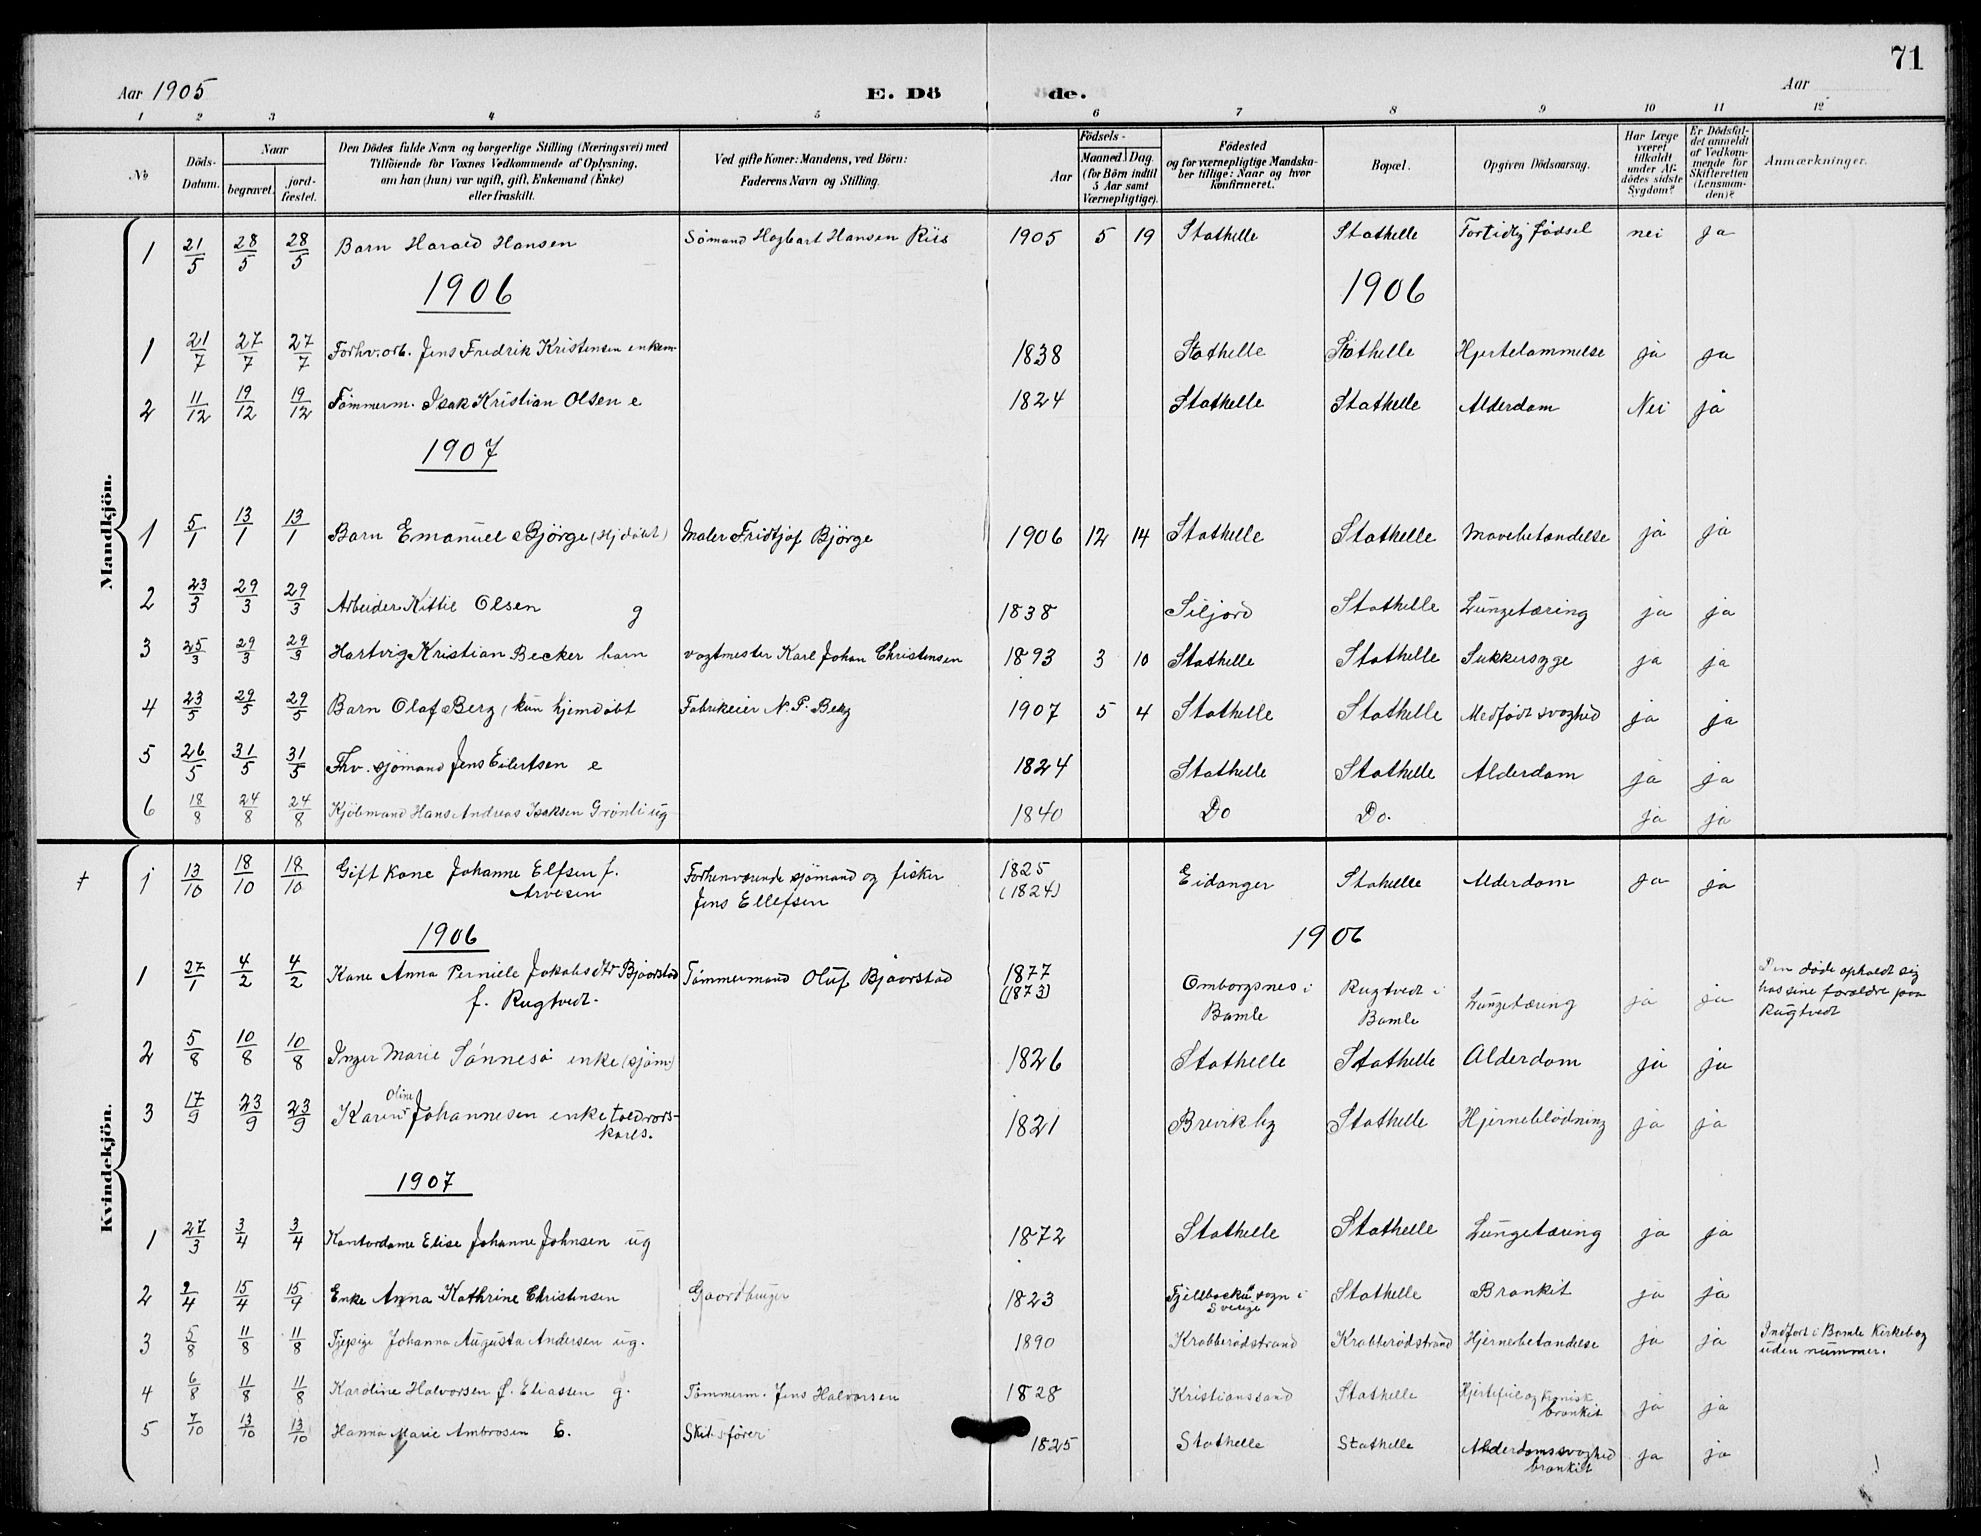 71
Aar 1905 E. Dö de. Aar
1 2 3 4 5 6 7 8 9 10 11 12
No
Döds-Datum.
Naar
begravet.
jord-fæstet.
Den Dödes fulde Navn og borgerlige Stilling (Næringsvei) med
Tilföiende for Voxnes Vedkommende af Oplysning,
om han (hun) var ugift, gift, Enkemand (Enke)
eller fraskilt.
Ved gifte Koner: Mandens, ved Börn:
Faderens Navn og Stilling.
Födsels-
Aar
Maaned. Dag.
(for Börn indtil
5 Aar samt
Værnepligtige).
Födested
og for værnepligtige Mandska-
ber tillige: Naar og hvor
konfirmeret.
Bopæl.
Opgiven Dödsaarsag.
Har Læge
været
tilkaldt
under Af-
dödes sidste
Sygdom?
Er Dödsfal-
det anmeldt
af Vedkom-
mende for
Skifteretten
(Lensman-
den)?
Anmærkninger.
Mandkjön.
1 21/5 28/5 28/5 Barn Harald Hansen Sømand Hagbart Hansen Riis 1905 5 19 Stathelle Stathelle Fortidlig fødsel nei ja
1906 1906
1 21/7 27/7 27/7 Forhv. arb. Jens Fredrik Kristensen enkem. 1838 Stathelle Stathelle Hjertelammelse ja ja
2 11/12 19/12 19/12 Tømmerm. Isak Kristian Olsen e 1824 Stathelle Stathelle Alderdom Nei ja
1907
1 5/1 13/1 13/1 Barn Emanuel Bjørge (Hjdøbt) Maler Fridtjof Bjørge 1906 12 14 Stathelle Stathelle Mavebetændelse ja ja
2 23/3 29/3 29/3 Arbeider Kittil Olsen g 1838 Siljord Stathelle Lungetæring ja ja
3 25/3 29/3 29/3 Hartvig Kristian Becker barn vagtmester Karl Johan Christensen 1893 3 10 Stathelle Stathelle Sukkersyge ja ja
4 23/5 29/5 29/5 Barn Olaf Berg, kun hjemdøbt Fabrikeier N. P. Berg 1907 5 4 Stathelle Stathelle Medfødt svaghed ja ja
5 26/5 31/5 31/5 Fhv. sjømand Jens Eilertsen e 1824 Stathelle Stathelle Alderdom ja ja
6 18/8 24/8 24/8 Kjøbmand Hans Andreas Isaksen Grønli ug 1840 Do Do. ja ja
Kvindekjön.
+ 1 13/10 18/10 18/10 Gift kone Johanne Elfsen f. Forhenværende sjømand og fisker 1825 Eidanger Stathelle Alderdom ja ja
Arvesen Jens Ellefsen (1824)
1906 1906
1 27/1 4/2 4/2 Kone Anna Pernille Jakobsdtr Bjaorstad Tømmermand Oluf Bjaorstad 1877 Omborgsnes i Rugtvedt i Lungetæring ja ja Den døde opholdt sig
f. Rugtvedt. (1873) Bamle Bamle hos sine forældre paa
Rugtvedt
2 5/8 10/8 10/8 Inger Marie Sønnesø enke (sjøm) 1826 Stathelle Stathelle Alderdom ja ja
Oline
3 17/9 23/9 23/9 Karen Johannesen enke toldrors- 1821 Brevik by Stathelle Hjerneblødning ja ja
karls.
1907
1 27/3 3/4 3/4 Kontordame Elise Johanne Johnsen ug 1872 Stathelle Stathelle Lungetæring ja ja
2 2/4 15/4 15/4 Enke Anna Kathrine Christensen Gaardbruger 1823 Fjellbacka sogn i Stathelle Bronkit ja ja
Sverige
3 5/8 11/8 11/8 Tjepige Johanna Augusta Andersen ug. 1890 Krabberødstrand Krabberødstrand Hjernebetændelse ja ja Indført i Bamle Kirkebog
uden nummer.
4 6/8 11/8 11/8 Karoline Halvorsen f. Eliassen g. Tømmerm. Jens Halvorsen 1828 Kristianssand Stathelle Hjertefeil og kronisk ja ja
bronkit
5 7/10 13/10 13/10 Hanna Marie Ambrosen E. Skibsfører 1825 Stathelle Stathelle Alderdomssvaghed ja ja
bronkit